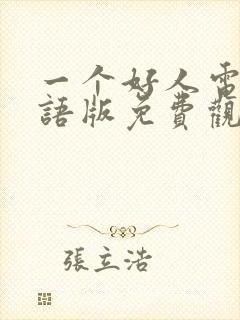 一个好人電
語版免費觀
張立浩